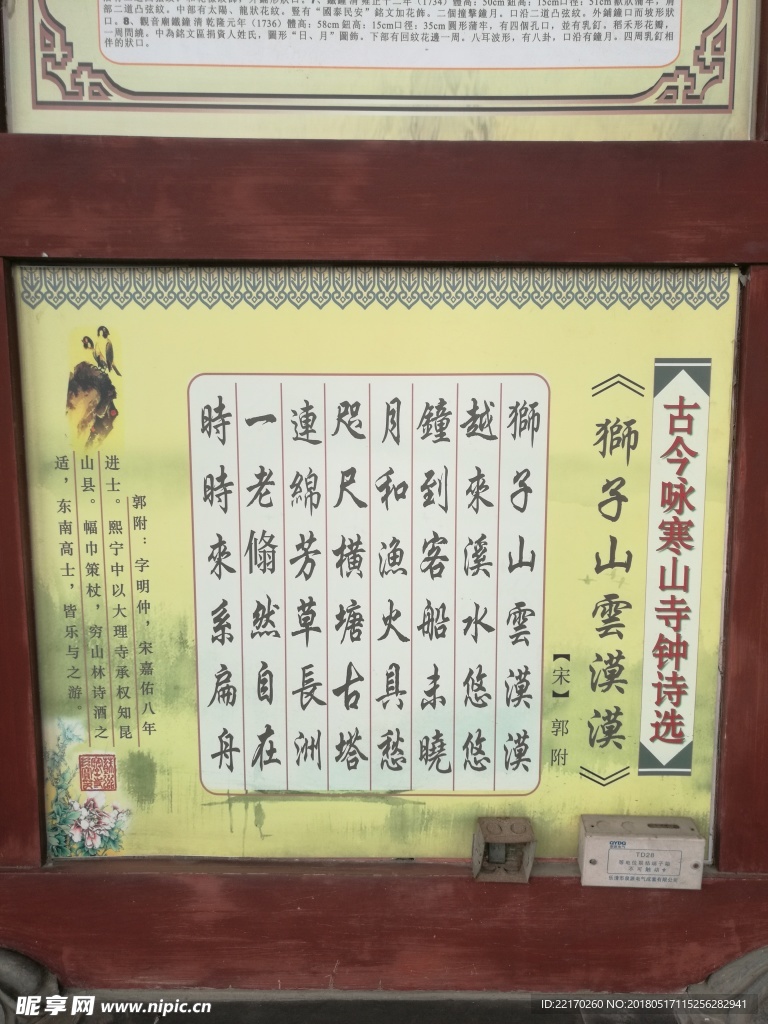 部二道凸弦紋。中部有太陽、龍狀花紋。豎有“國泰民安”銘文加花飾。二個撞擊鐘月。口沿二道凸弦紋。外鋪鐘口而坡形狀
口。8、觀音廟鐵鐘 清 乾隆元年（1736）體高：58cm 鈕高：15cm口徑：35cm 圓形蒲牢，有四個孔口，並有乳釘。稻禾形花瓣，
一周間繞。中為銘文區捐貲人姓氏，圖形“日、月”圖飾。下部有回紋花邊一周。八耳波形，有八卦，口沿有鐘月。四周乳釘相
伴的狀口。
古今咏寒山寺钟诗选
《獅子山雲漠漠》
【宋】郭附
獅子山雲漠漠
越來溪水悠悠
鐘到客船未曉
月和漁火具愁
咫尺橫塘古塔
連綿芳草長洲
一老翛然自在
時時來系扁舟
郭附：字明仲，宋嘉佑八年
进士。熙宁中以大理寺承权知昆
山县。幅巾策杖，穷山林诗酒之
适，东南高士，皆乐与之游。
TD28
昵享网 www.nipic.cn
ID:22170260 NO:20180517115256282941